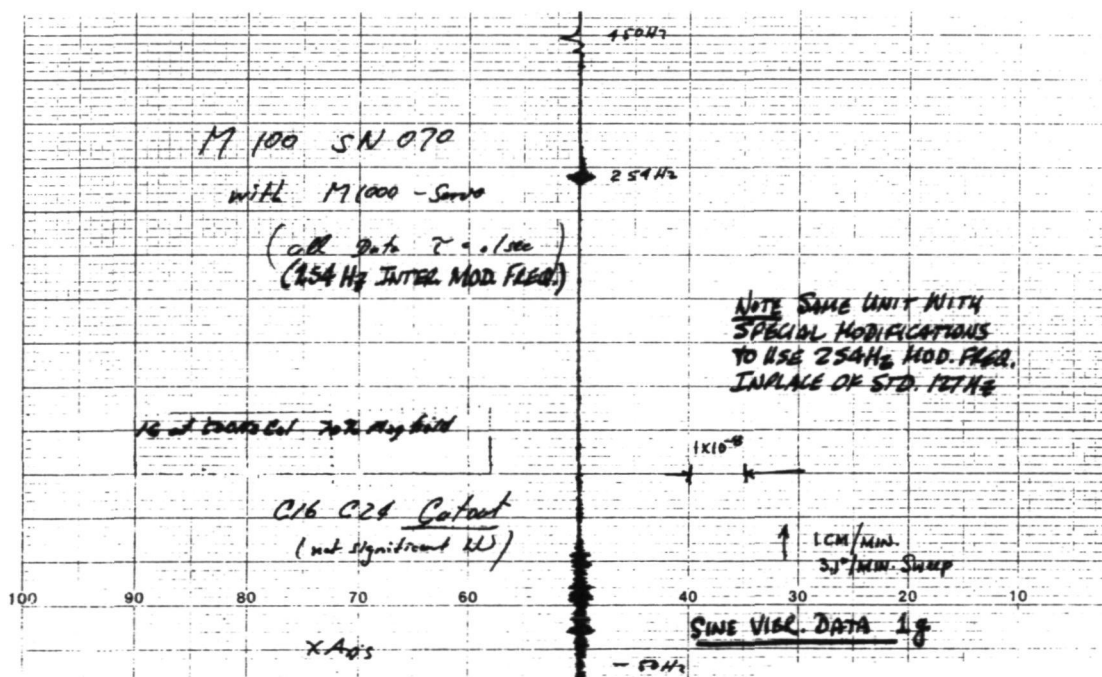 450Hz
M 100 SN 070
254Hz
with M1000 - Servo
(all Data τ = .1sec)
(254 Hz INTER MOD. FREQ.)
NOTE SAME UNIT WITH
SPECIAL MODIFICATIONS
TO USE 254Hz MOD. FREQ.
INPLACE OF STD. 127Hz
70% Mag field
1x10⁻⁸
C16 C24 Cutout
(not significant)
1 CM/MIN.
/MIN. Sweep
100 90 80 70 60 40 30 20 10
SINE VIBR. DATA 1g
X Axis
- 50Hz